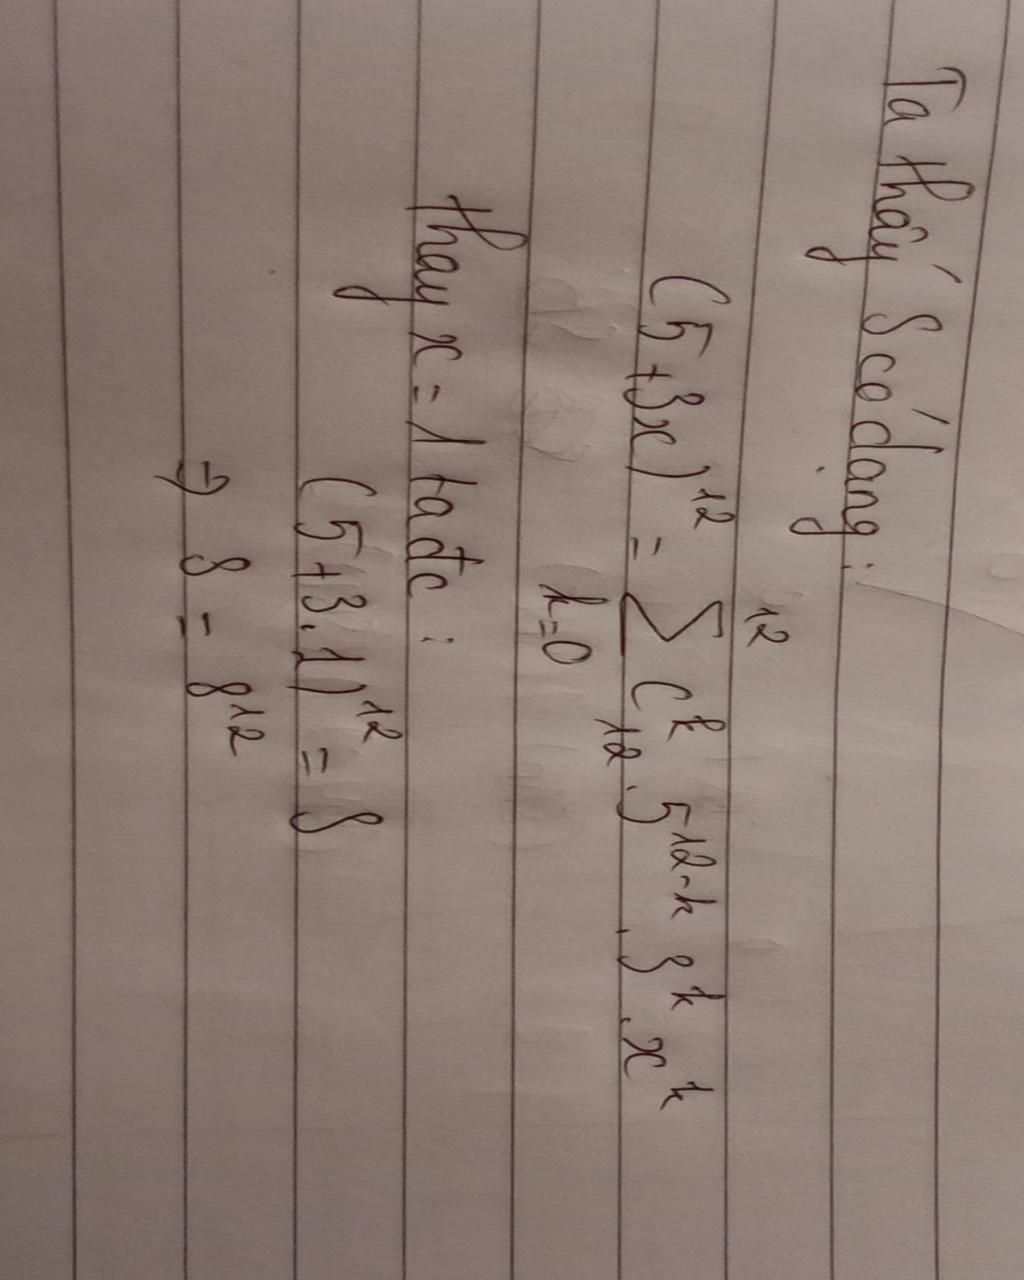 Ta thấy S có dạng:
(5+3x)^12 = \sum_{k=0}^{12} C_{12}^k . 5^{12-k} . 3^k . x^k
thay x = 1 ta đc :
(5+3.1)^12 = S
=> S = 8^12